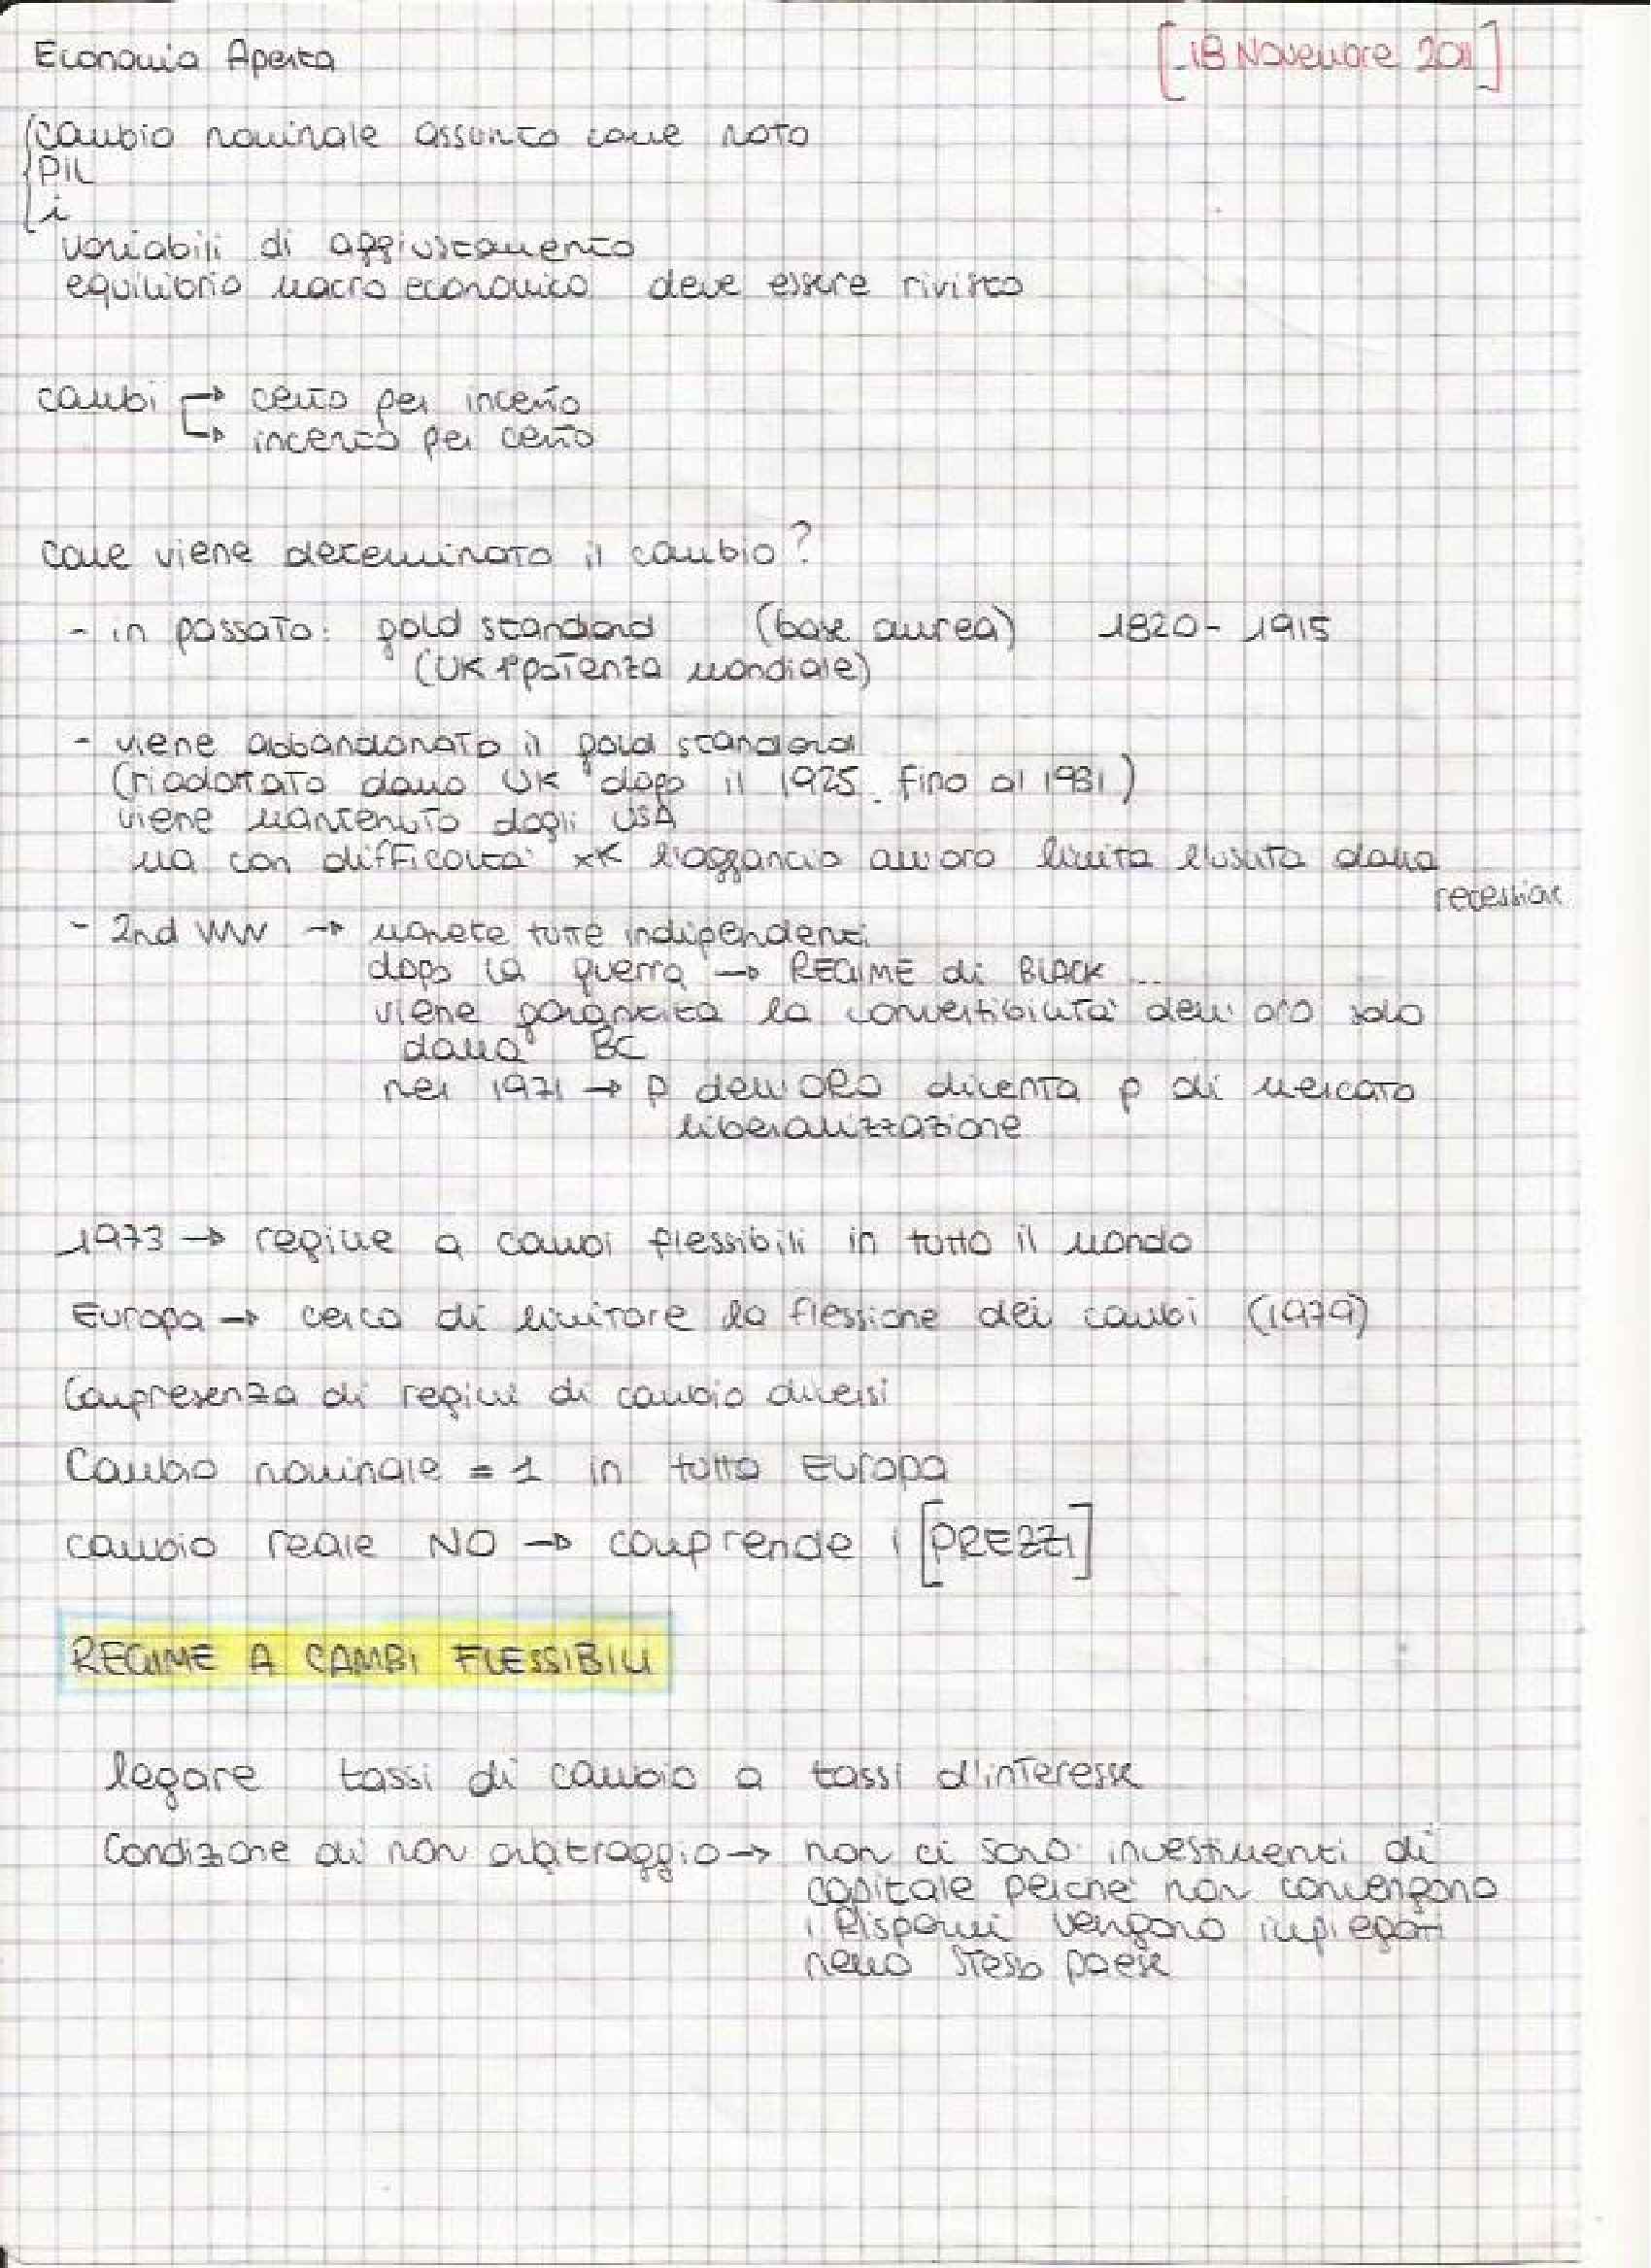 Economia Aperta [18 Novembre 2011]
cambio nominale assunto come noto
PIL
i
variabili di aggiustamento
equilibrio macro economico deve essere rivisto
cambi → certo per incerto
→ incerto per certo
come viene determinato il cambio?
- in passato: gold standard (base aurea) 1820 - 1915
(UK 1ª potenza mondiale)
- viene abbandonato il gold standard
(riadottato dallo UK dopo il 1925 fino al 1931)
viene mantenuto dagli USA
ma con difficoltà xK l'aggancio all'oro limita l'uscita dalla
recessione
- 2nd WW → monete tutte indipendenti
dopo la guerra → REGIME di BLACK ...
viene garantita la convertibilità dell'oro solo
dalla BC
nel 1971 → p dell'ORO diventa p di mercato
liberalizzazione
1973 → regime a cambi flessibili in tutto il mondo
Europa → cerca di limitare la flessione dei cambi (1979)
Compresenza di regimi di cambio diversi
Cambio nominale = 1 in tutta Europa
cambio reale NO → comprende i [PREZZI]
REGIME A CAMBI FLESSIBILI
legare tassi di cambio a tassi d'interesse
Condizione di non arbitraggio → non ci sono investimenti di
capitale perché non convengono
i Risparmi vengono impiegati
nello stesso paese